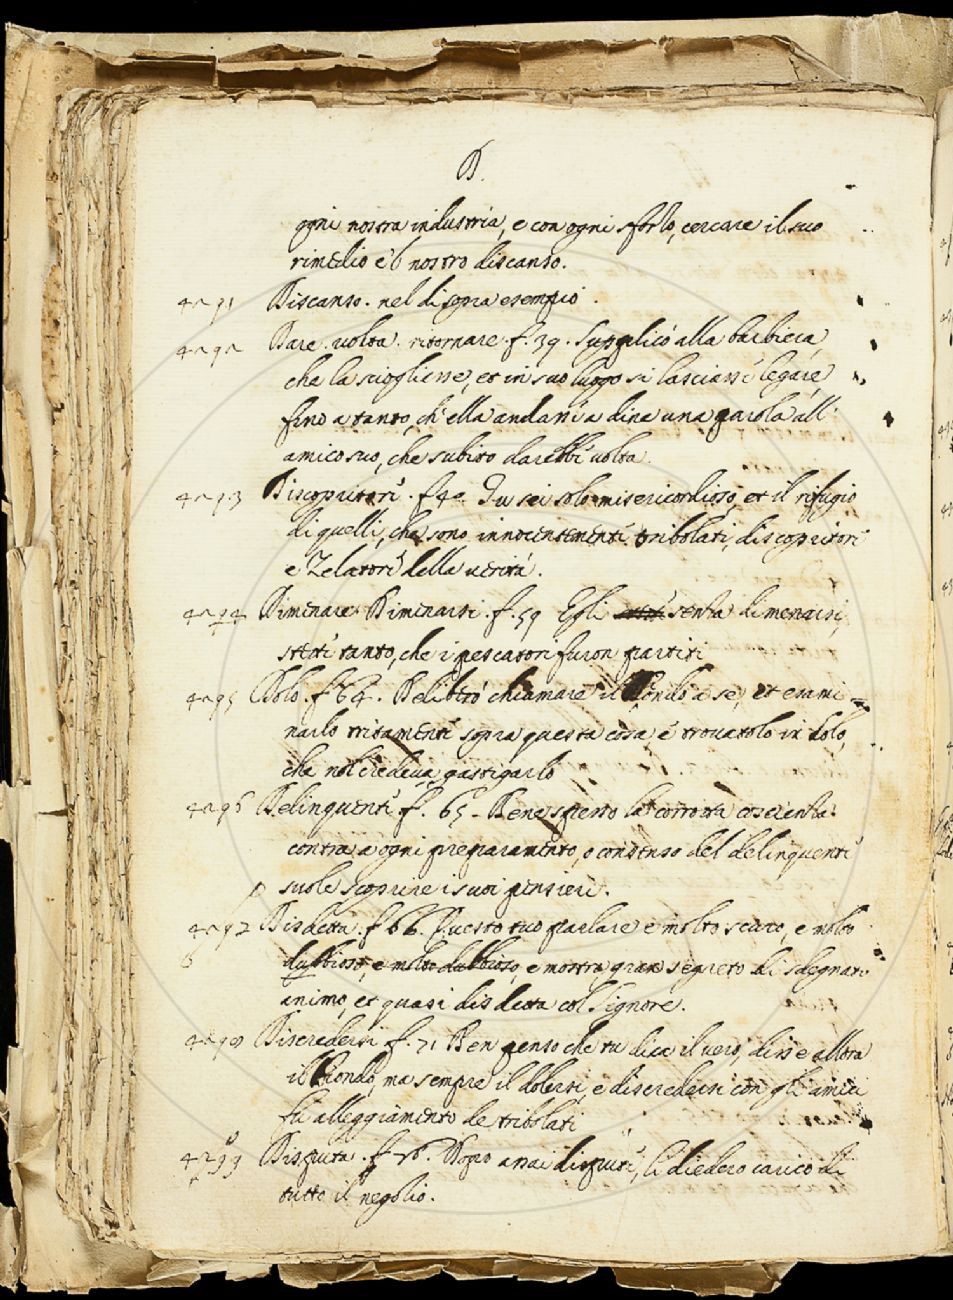 D.
ogni nostra industria, e con ogni sforzo, cercare il suo
rimedio è 'l nostro discanso.
4291 Discanso. nel di sopra esempio.
4292 Dare volta. ritornare. f. 39. Supplicò alla barbiera,
che la sciogliesse, et in suo luogo si lasciassi legare,
fino a tanto, ch'ella andassi a dire una parola all'
amico suo, che subito darebbe volta.
4293 Discopritori. f. 40. Tu sei solo misericordioso, et il rifugio
di quelli, che sono innocentementi tribolati, discopritori
e Zelatori della verità.
4294 Dimenare Dimenarsi. f. 59 Egli senza dimenarsi,
stette tanto, che i pescatori furon partiti
4295 Dolo. f. 64. Deliberò chiamare il Biondo a se, et esami=
narlo tritamenti sopra questa cosa e trovatolo in dolo,
che nol credeva, gastigarlo
4296 Delinquenti f. 65. Bene spesso la corrotta coscienza
contra a ogni preparamento, o consenso del delinquenti
suole scoprire i suoi pensieri.
4297 Disdetta. f. 66. Questo tuo parlare è molto scuro, e molto
dubbioso, e molto dubbioso, e mostra gran segreto di sdegnato
animo, et quasi disdetta col Signore.
4298 Discredersi f. 71 Ben penso che tu dica il vero, disse allora
il Biondo, ma sempre il dolersi, e discredersi con gli amici
fu alleggiamento de tribolati
4299 Disputa. f. 76. Dopo assai dispute, li diedero carico di
tutto il negozio.